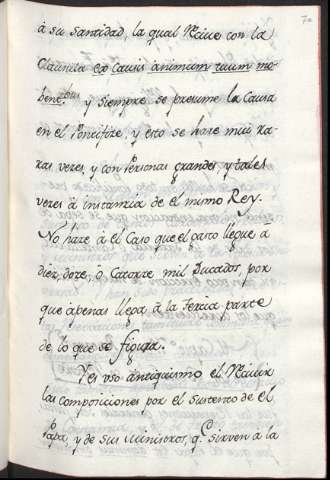 à su santidad, la qual Reciue con la
Clausula ex Causis animum tuum mo-
bentibus y siempre se presume la Causa
en el Pontifize, y esto se hase mui ra-
ras veces, y con Personas grandes y tales
veces à instanzia de el mismo Rey.
No haze à el Caso que el gasto llegue a
diez, doze, ò Catorze mil Ducados, por
que apenas llega à la Tercia parte
de lo que se figura.
Yes uso antiquisimo el Reciuir
las composiciones por el sustento de el
Papa, y de sus Ministros, q.e siruen à la